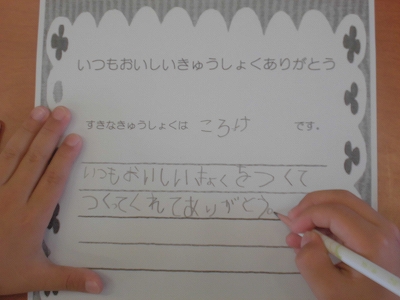 いつもおいしいきゅうしょくありがとう
すきなきゅうしょくは ころけ です。
いつもおいしいきょくをつくて
つくってくれてありがとう。